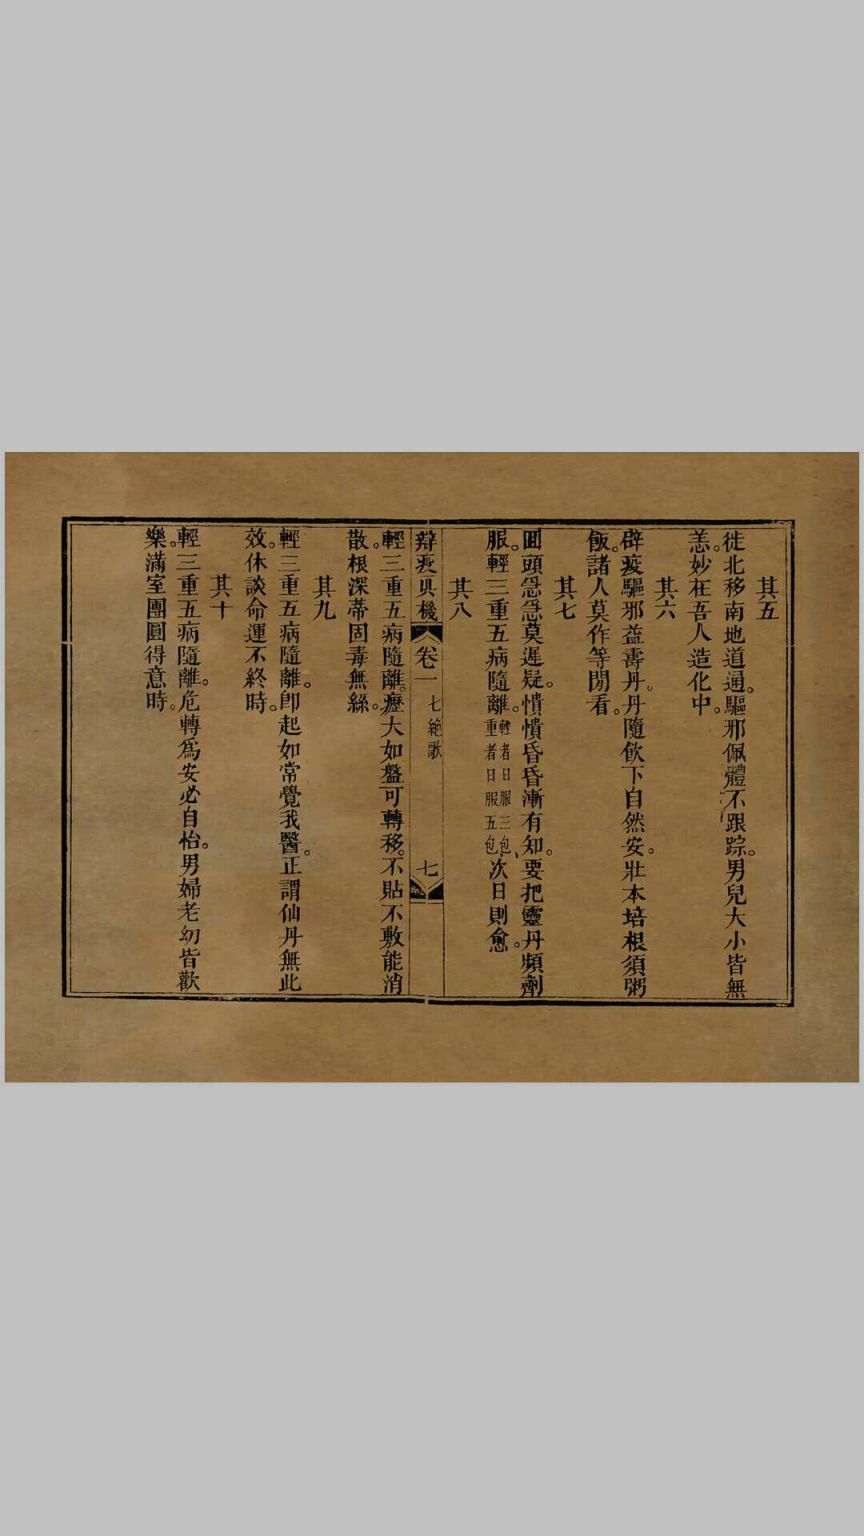 其五
徙北移南地道通。驅邪佩體不跟踪。男兒大小皆無
恙。妙在吾人造化中。
其六
辟疫驅邪益壽丹。丹隨飲下自然安。壯本培根須粥
飯。諸人莫作等閒看。
其七
回頭急急莫遲疑。憒憒昏昏漸有知。要把靈丹頻劑
服。輕三重五病隨離。輕者日服三包、重者日服五包、次日則愈。
其八
辯疫真機 卷一 七絕歌 七
輕三重五病隨離。癧大如盤可轉移。不貼不敷能消
散。根深蒂固毒無絲。
其九
輕三重五病隨離。卽起如常覺我醫。正謂仙丹無此
效。休談命運不終時。
其十
輕三重五病隨離。危轉爲安必自怡。男婦老幼皆歡
樂。滿室團圓得意時。